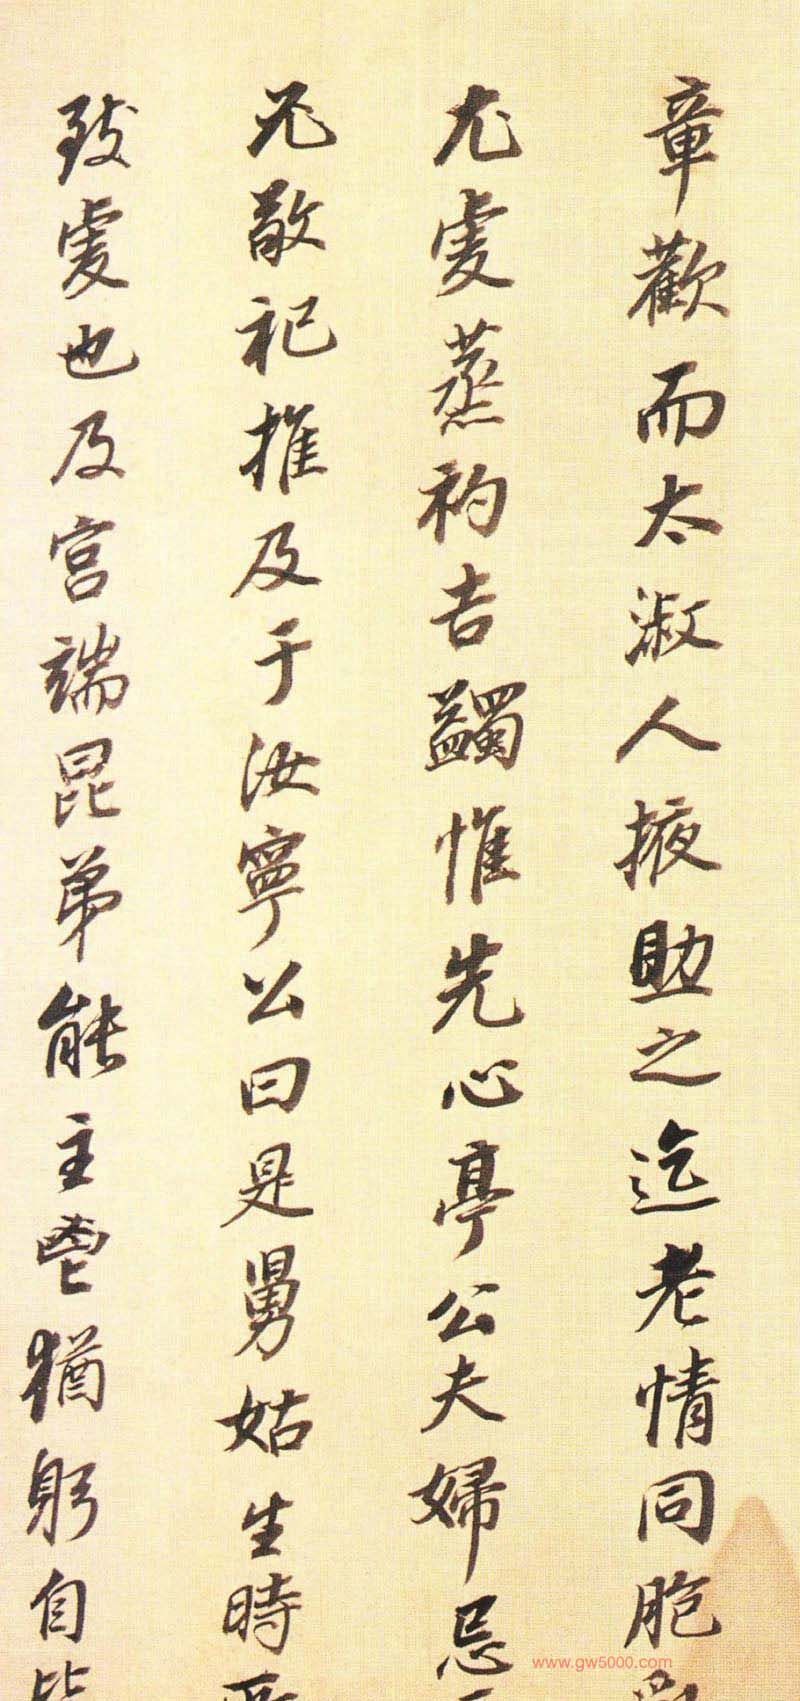 章歡而太淑人掖助之迄老情同胞
尤虔蒸礿吉蠲惟先心亭公夫婦忌
兄敬祀推及于汝寧公曰是舅姑生時所
致虔也及宮端昆弟能主鬯猶躬自
www.gw5000.com